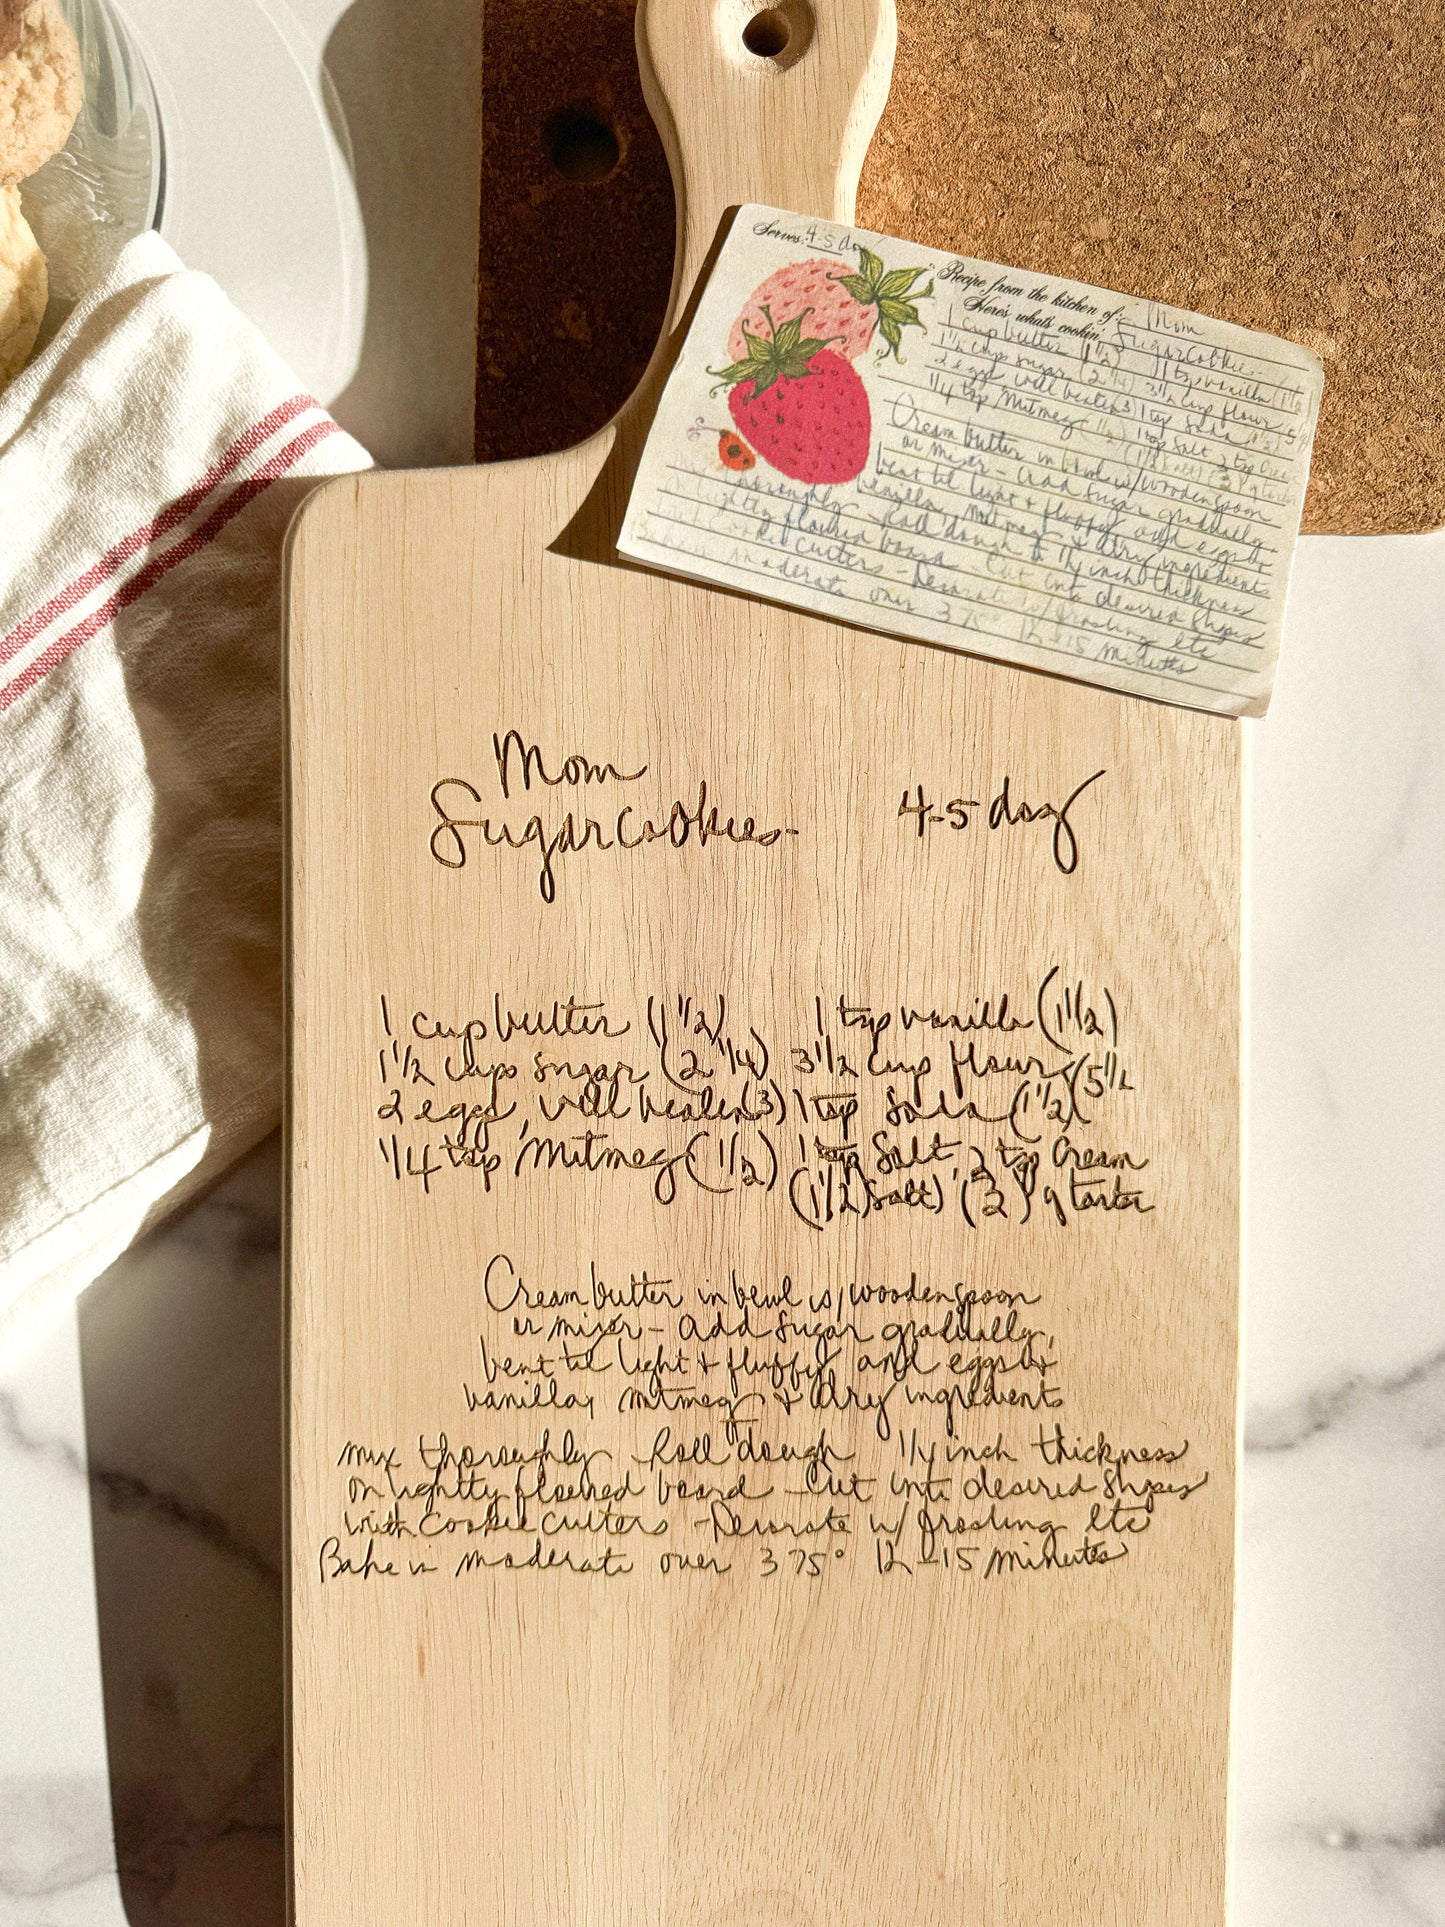 Serves: 4-5 doz
Recipe from the kitchen of: Mom
Here's what's cookin': Sugar Cookies
1 cup butter (1 1/2) 1 tsp vanilla (1 1/2)
1 1/2 cups sugar (2 1/4) 3 1/2 cup flour 5 1/2
2 eggs, well beaten (3) 1 tsp Soda (1 1/2)
1/4 tsp Nutmeg (1/2) 1 tsp Salt 2 tsp Cream
(1 1/2 salt) (3) of tarter
Cream butter in bowl w/wooden spoon
or mixer - Add sugar gradually,
beat til light & fluffy add eggs &
vanilla, nutmeg & dry ingredients
thoroughly Roll dough to 1/4 inch thickness
lightly floured board - Cut into desired shapes
cookie cutters - Decorate w/ frosting etc
moderate oven 375° 12-15 minutes
Mom
Sugar Cookies - 4-5 doz
1 cup butter (1 1/2) 1 tsp vanilla (1 1/2)
1 1/2 cups sugar (2 1/4) 3 1/2 cup flour (5 1/2
2 eggs, well beaten (3) 1 tsp Soda (1 1/2)
1/4 tsp Nutmeg (1/2) 1 tsp Salt, 2 tsp Cream
(1 1/2 salt) (3) of tarter
Cream butter in bowl w/wooden spoon
or mixer - Add sugar gradually,
beat til light & fluffy add eggs &
vanilla, nutmeg & dry ingredients
mix thoroughly Roll dough 1/4 inch thickness
on lightly floured board - Cut into desired shapes
with cookie cutters - Decorate w/ frosting etc
Bake in moderate oven 375° 12-15 minutes